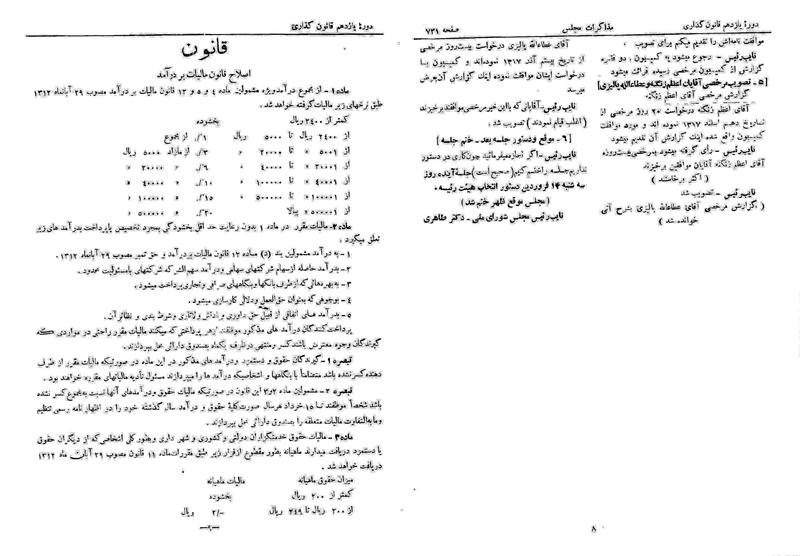 دورهٔ یازدهم قانون گذاری
مذاکرات مجلس
صفحه ۷۳۱
موافقت نامه‌اش را تقدیم میکنم برای تصویب
نایب‌رئیس - رجوع میشود به کمیسیون، دو فقره
گزارش از کمیسیون مرخصی رسیده قرائت میشود
[۵ - تصویب مرخصی آقایان اعظم زنگنه و عطاءالله پالیزی]
گزارش مرخصی آقای اعظم زنگنه
آقای اعظم زنگنه درخواست ۲۰ روز مرخصی از
تاریخ دهم اسفند ۱۳۱۷ نموده‌اند و مورد موافقت
کمیسیون واقع شده اینک گزارش آن تقدیم میشود
نایب‌رئیس - رأی گرفته میشود بمرخصی بیست روزه
آقای اعظم زنگنه آقایان موافقین برخیزند
( اکثر برخاستند )
نایب‌رئیس - تصویب شد
( گزارش مرخصی آقای عطاءالله پالیزی بشرح آتی
خوانده شد )
آقای عطاءالله پالیزی درخواست بیست روز مرخصی
از تاریخ بیستم آذر ۱۳۱۷ نموده‌اند و کمیسیون با
درخواست ایشان موافقت نموده اینک گزارش آن بعرض
میرسد
نایب‌رئیس - آقایانی که با این خبر مرخصی موافقند برخیزند
( اغلب قیام نمودند ) تصویب شد
[ ۶ - موقع و دستور جلسه بعد - ختم جلسه ]
نایب‌رئیس - اگر اجازه میفرمائید چون کاری در دستور
نداریم جلسه را ختم کنیم (صحیح است) جلسه آینده روز
سه شنبه ۱۴ فروردین دستور انتخاب هیئت رئیسه.
(مجلس موقع ظهر ختم شد)
نایب‌رئیس مجلس شورای ملی - دکتر طاهری
۸
دورهٔ یازدهم قانون گذاری
قانون
اصلاح قانون مالیات بر درآمد
ماده ۱ - از مجموع درآمد ویژه مشمولین ماده ۴ و ۵ و ۱۳ قانون مالیات بر درآمد مصوب ۲۹ آبانماه ۱۳۱۲
طبق نرخهای زیر مالیات گرفته خواهد شد.
کمتر از ۲۴۰۰ ریال بخشوده
از ۲۴۰۰ ریال تا ۵۰۰۰ ریال ۱٪ از مجموع
از ۵۰۰۱ » تا ۲۰۰۰۰ » ۳٪ از مازاد ۵۰۰۰ ریال
از ۲۰۰۰۱ » تا ۴۰۰۰۰ » ۶٪ » ۲۰۰۰۰ »
از ۴۰۰۰۱ » تا ۱۰۰۰۰۰ » ۱۰٪ » ۴۰۰۰۰ »
از ۱۰۰۰۰۱ » تا ۵۰۰۰۰۰ » ۱۵٪ » ۱۰۰۰۰۰ »
از ۵۰۰۰۰۱ » ببالا ۲۰٪ » ۵۰۰۰۰۰ »
ماده ۲ - مالیات مقرر در ماده ۱ بدون رعایت حد اقل بخشودگی بمجرد تخصیص یا پرداخت بدرآمد های زیر
تعلق میگیرد :
۱ - به درآمد مشمولین بند (د) ماده ۱۲ قانون مالیات بر درآمد و حق تمبر مصوب ۲۹ آبانماه ۱۳۱۲.
۲ - بدرآمد حاصله از سهام شرکتهای سهامی و درآمد سهم الشرکه شرکتهای با مسئولیت محدود.
۳ - به بهره‌هائی که از طرف بانکها و بنگاههای صرافی و تجاری پرداخت میشود.
۴ - بوجوهی که بعنوان حق‌العمل و دلالی کارسازی میشود.
۵ - بدرآمد های اتفاقی از قبیل حق داوری و پاداش و لاتاری و شرط بندی و نظائر آن.
پرداخت کنندگان درآمد های مذکور موظفند از هر پرداختی که میکنند مالیات مقرر را حتی در مواردی که
گیرندگان وجوه معترض باشند کسر و منتهی در ظرف یکماه بصندوق دارائی محل بپردازند.
تبصره ۱ - گیرندگان حقوق و دستمزد و درآمد های مذکور در این ماده در صورتیکه مالیات مقرر از طرف
دهنده کسر نشده باشد متضامناً با بنگاهها و اشخاصیکه درآمد ها را میپردازند مسئول تأدیه مالیاتهای مقرره خواهند بود.
تبصره ۲ - مشمولین ماده ۲و۳ این قانون در صورتیکه مالیات حقوق و درآمدهای آنها نسبت به مجموع کسر نشده
باشد شخصاً موظفند تا ۱۵ خرداد هر سال صورت کلیهٔ حقوق و درآمد سال گذشته خود را در اظهار نامه رسمی تنظیم
و مابه‌التفاوت مالیات متعلقه را بصندوق دارائی محل بپردازند.
ماده ۳ - مالیات حقوق خدمتگزاران دولتی و کشوری و شهر داری و بطور کلی اشخاصی که از دیگران حقوق
یا دستمزد دریافت میدارند ماهیانه بطور مقطوع از قرار زیر طبق مقررات ماده ۱۱ قانون مصوب ۲۹ آبان ماه ۱۳۱۲
دریافت خواهد شد.
میزان حقوق ماهیانه مالیات ماهیانه
کمتر از ۲۰۰ ریال بخشوده
از ۲۰۰ ریال تا ۲۴۹ ریال ۲/- ریال
-۹-